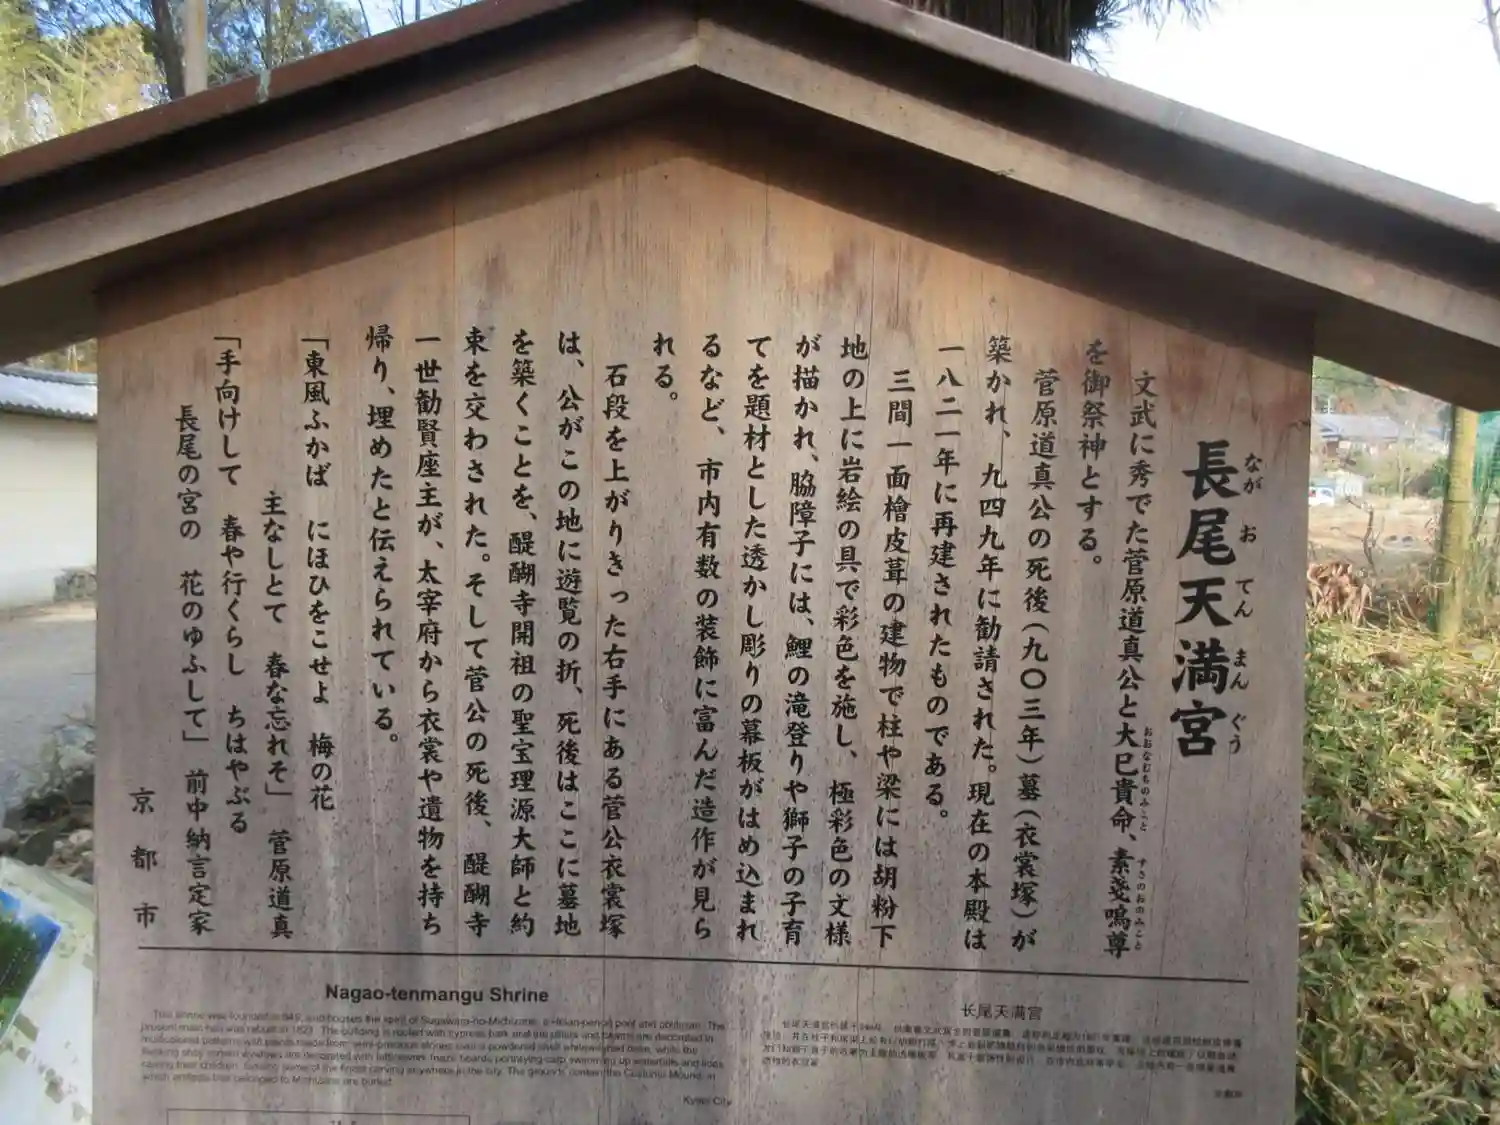 長尾天満宮
なが お てん まん ぐう
文武に秀でた菅原道真公と大己貴命、素戔嗚尊
おおなむちのみこと すさのおのみこと
を御祭神とする。
菅原道真公の死後（九〇三年）墓（衣裳塚）が
築かれ、九四九年に勧請された。現在の本殿は
一八二一年に再建されたものである。
三間一面檜皮葺の建物で柱や梁には胡粉下
地の上に岩絵の具で彩色を施し、極彩色の文様
が描かれ、脇障子には、鯉の滝登りや獅子の子育
てを題材とした透かし彫りの幕板がはめ込まれ
るなど、市内有数の装飾に富んだ造作が見ら
れる。
石段を上がりきった右手にある菅公衣裳塚
は、公がこの地に遊覧の折、死後はここに墓地
を築くことを、醍醐寺開祖の聖宝理源大師と約
束を交わされた。そして菅公の死後、醍醐寺
一世勧賢座主が、太宰府から衣裳や遺物を持ち
帰り、埋めたと伝えられている。
「東風ふかば にほひをこせよ 梅の花
主なしとて 春な忘れそ」 菅原道真
「手向けして 春や行くらし ちはやぶる
長尾の宮の 花のゆふして」 前中納言定家
京都市
Nagao-tenmangu Shrine
This shrine was founded in 949, and houses the spirit of Sugawara-no-Michizane, a Heian-period poet and politician. The
present main hall was rebuilt in
raising their children, forming some of the finest carving anywhere in the city. The grounds contain the Costume Mound, in
which artifacts that belonged to Michizane are buried.
Kyoto City
长尾天满宫